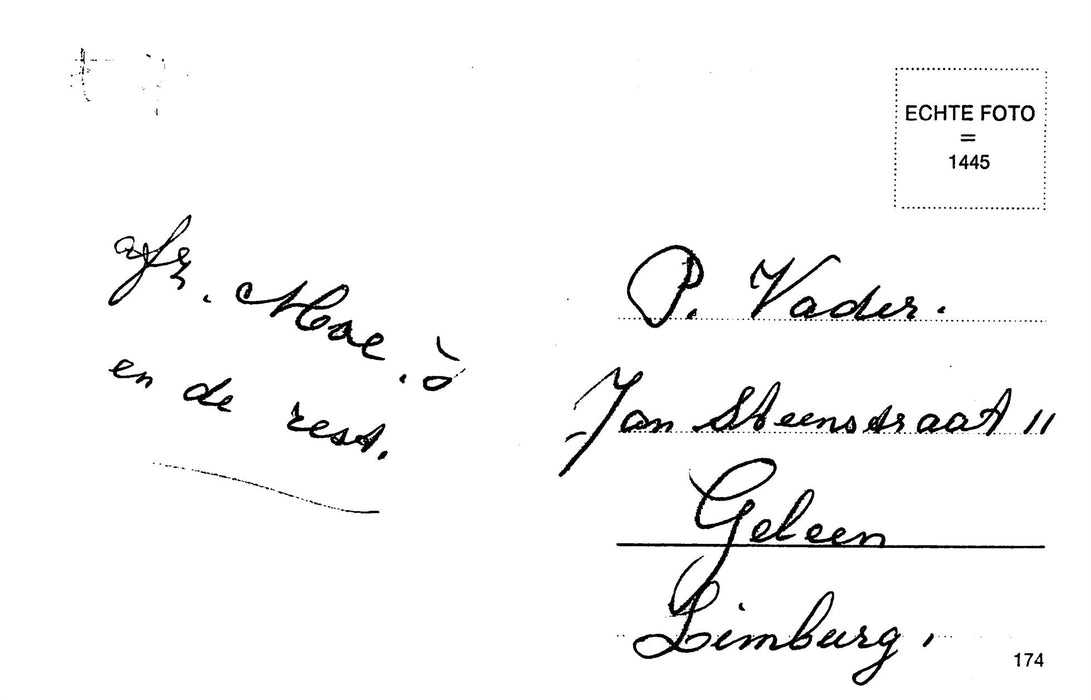 ECHTE FOTO
=
1445
afz. Moe.
en de rest.
P. Vader.
Jan Steenstraat 11
Geleen
Limburg.
174